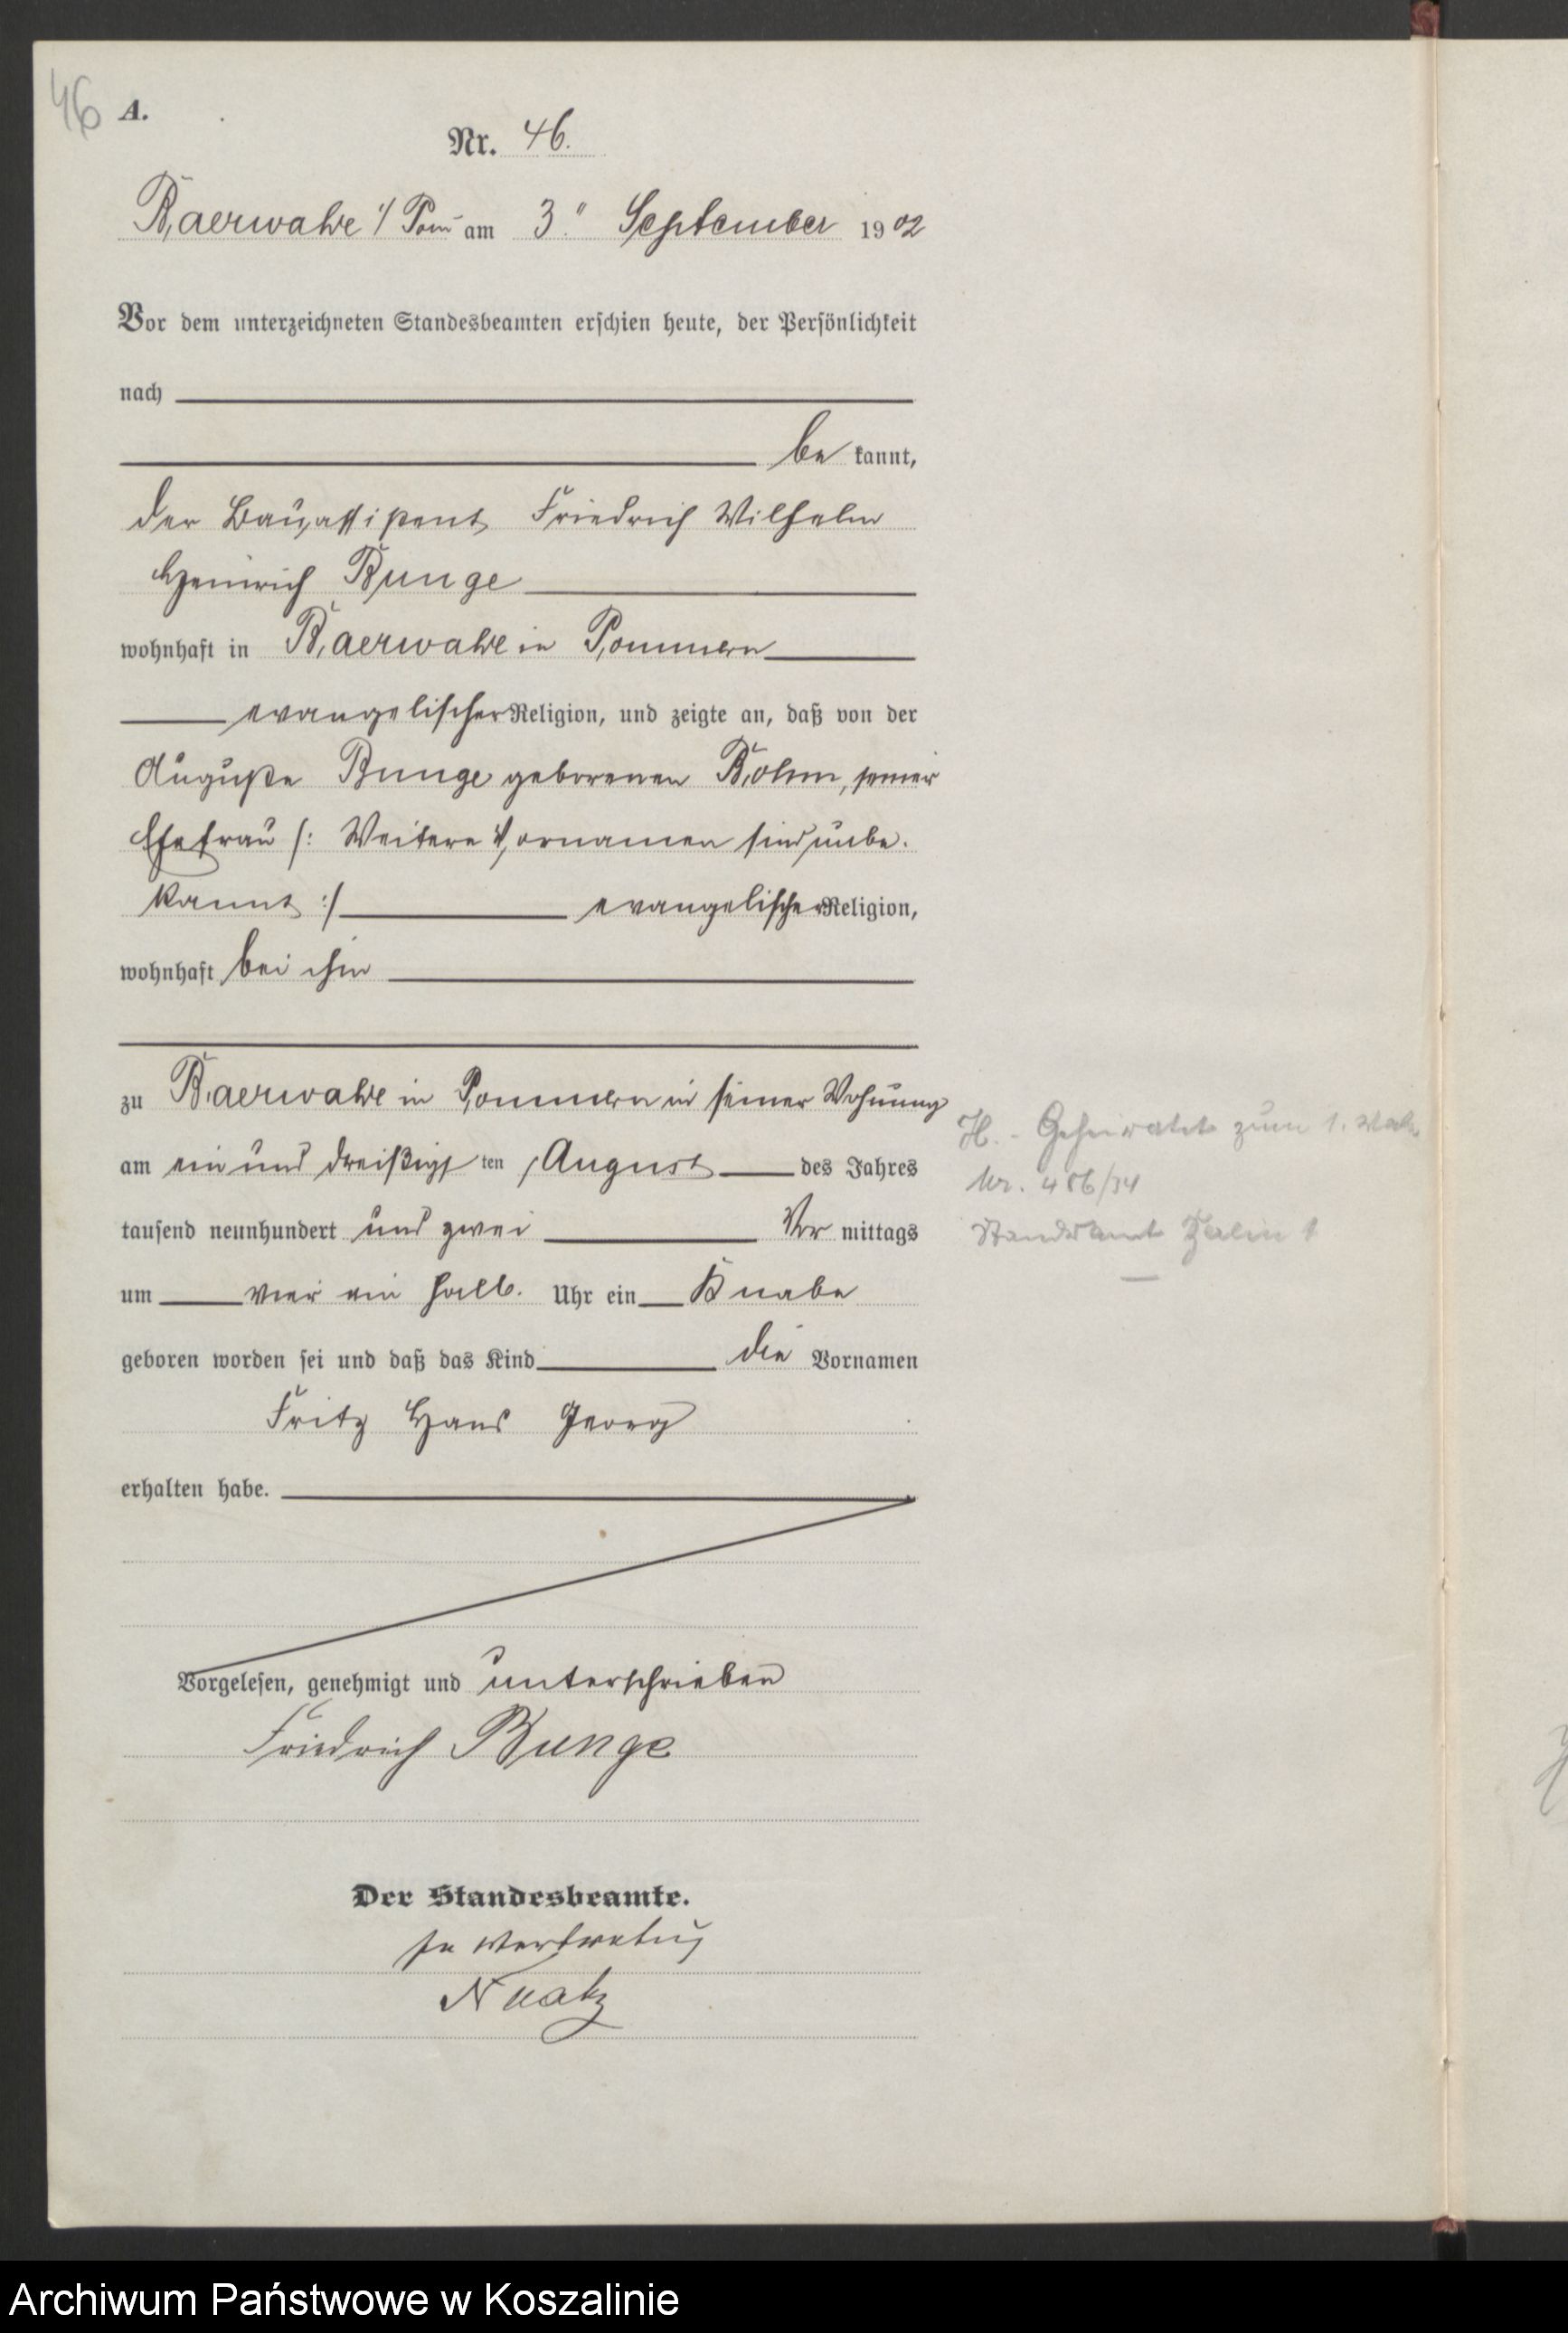 46
A.
Nr. 46.
Baerwalde i/Pom am 3. September 1902
Vor dem unterzeichneten Standesbeamten erschien heute, der Persönlichkeit
nach
be kannt,
der Bauassistent Friedrich Wilhelm
Heinrich Bunge
wohnhaft in Baerwalde in Pommern
evangelischer Religion, und zeigte an, daß von der
Auguste Bunge geborenen Böhm, seiner
Ehefrau /: Weitere Vornamen sind unbe-
kannt :/ evangelischer Religion,
wohnhaft bei ihm
zu Baerwalde in Pommern in seiner Wohnung
am ein und dreißigsten August des Jahres
tausend neunhundert und zwei Vor mittags
um vier ein halb Uhr ein Knabe
geboren worden sei und daß das Kind die Vornamen
Fritz Hans Georg
erhalten habe.
Vorgelesen, genehmigt und unterschrieben
Friedrich Bunge
Der Standesbeamte.
In Vertretung
H. - Geheiratet zum 1. Male
Nr. 486/34
Standesamt Berlin 1
Archiwum Państwowe w Koszalinie